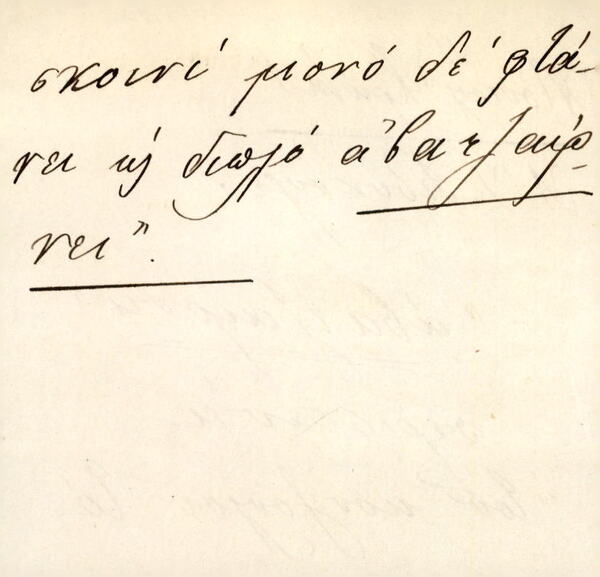 σκοινί μονό δέ φτά-
νει κι διπλό ἀβατζαίρ-
νει".